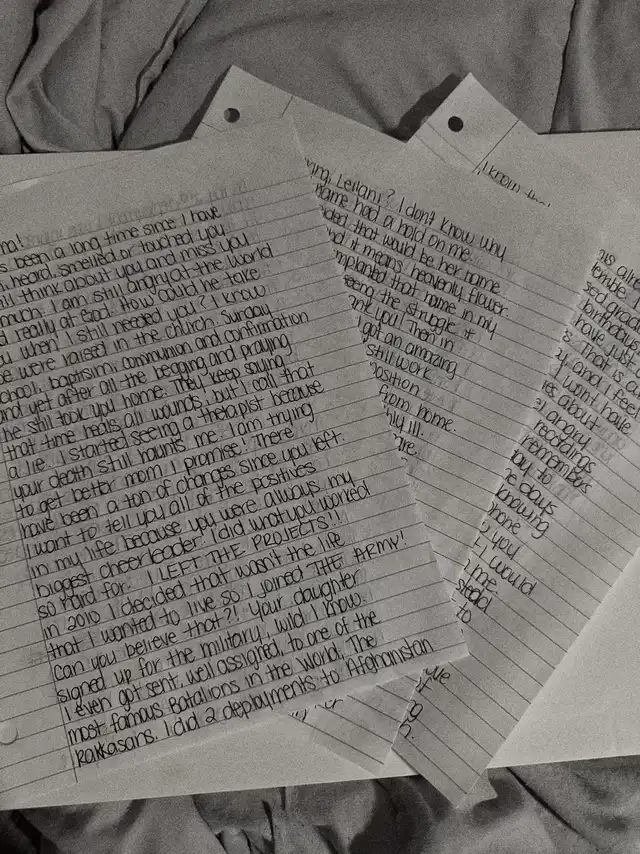 ma!
s been a long time since I have
heard, smelled or touched you
ill think about you and miss you
much. I am still angry at the world
d really at God. How could he take
ou when I still needed you? I know
e were raised in the church. Sunday
chool, baptism, communion and confirmation
and yet after all the begging and praying
he still took you home. They keep saying
that time heals all wounds, but I call that
a lie. I started seeing a therapist because
your death still haunts me. I am trying
to get better mom, I promise! There
have been a ton of changes since you left.
I want to tell you all of the positives
in my life because you were always my
biggest cheerleader. I did what you worked
so hard for. I LEFT THE PROJECTS!!
in 2010 I decided that wasn't the life
that I wanted to live so I joined THE ARMY!
Can you believe that?! Your daughter
signed up for the military, wild I know.
I even got sent, well assigned, to one of the
most famous Batalions in the world. The
Rakkasans. I did 2 deployments to Afghanistan
ying, Leilani? I don't know why
name had a hold on me.
ided that would be her name
nd it means heavenly flower.
mplanted that name in my
eeing the struggle it
ank you! Then in
got an amazing
still work
position
from home.
hly ill.
are.
I know
terrible
sed grace
birthdays
have just
s. That is a
y and I feel
I wont have
es about
angry
recordings
remembers
ay to
e days
knowing
none
o you
t I would
me.
steda
to
ove
t
g
n.